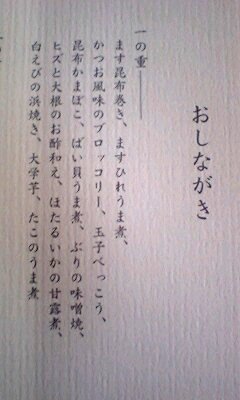 おしながき
一の重
ます昆布巻き、ますひれうま煮、
かつお風味のブロッコリー、玉子べっこう、
昆布かまぼこ、ばい貝うま煮、ぶりの味噌焼、
ヒズと大根のお酢和え、ほたるいかの甘露煮、
白えびの浜焼き、大学芋、たこのうま煮